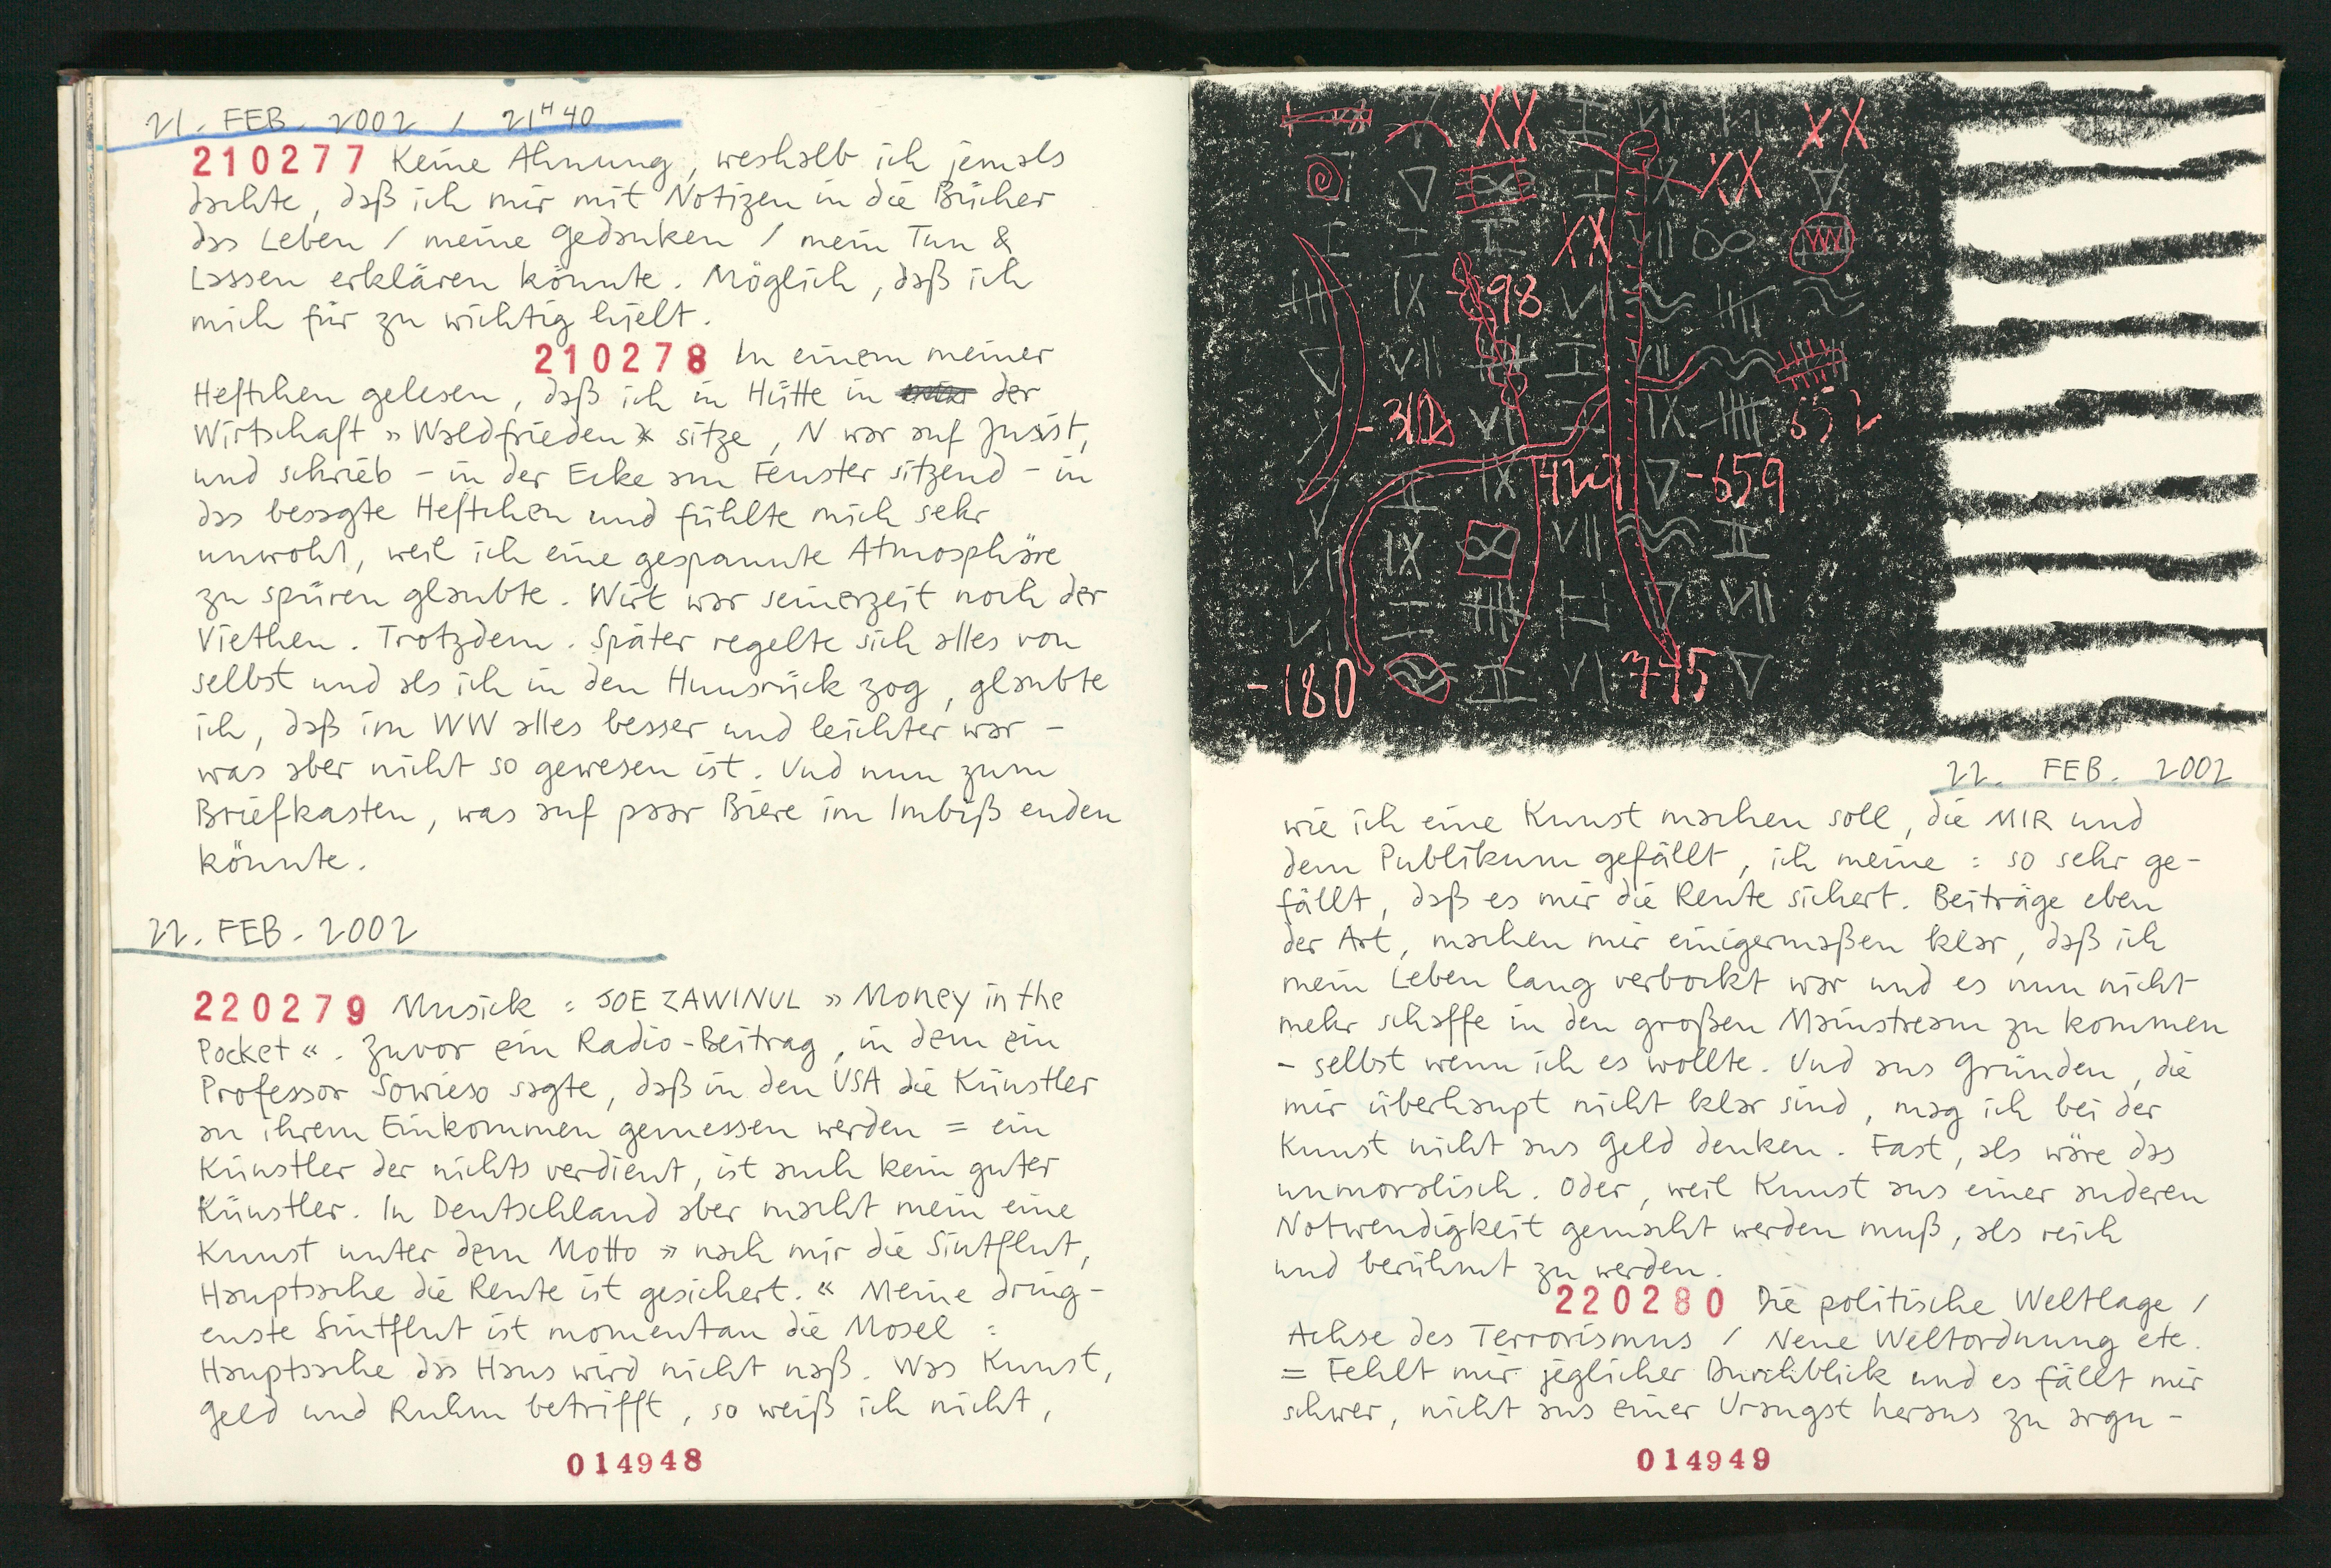 21. FEB. 2002 / 21H40
210277 Keine Ahnung, weshalb ich jemals
dachte, daß ich mir mit Notizen in die Bücher
das Leben / meine Gedanken / mein Tun &
Lassen erklären könnte. Möglich, daß ich
mich für zu wichtig hielt.
210278 In einem meiner
Heftchen gelesen, daß ich in Hütte in der
Wirtschaft »Waldfrieden« sitze, N war auf Juist,
und schrieb - in der Ecke am Fenster sitzend - in
das besagte Heftchen und fühlte mich sehr
unwohl, weil ich eine gespannte Atmosphäre
zu spüren glaubte. Wirt war seinerzeit noch der
Viethen. Trotzdem. Später regelte sich alles von
selbst und als ich in den Hunsrück zog, glaubte
ich, daß im WW alles besser und leichter war -
was aber nicht so gewesen ist. Und nun zum
Briefkasten, was auf paar Biere im Imbiß enden
könnte.
22. FEB. 2002
220279 Musick : JOE ZAWINUL »Money in the
Pocket«. Zuvor ein Radio-Beitrag, in dem ein
Professor Sowieso sagte, daß in den USA die Künstler
an ihrem Einkommen gemessen werden = ein
Künstler der nichts verdient, ist auch kein guter
Künstler. In Deutschland aber macht mein eine
Kunst unter dem Motto »nach mir die Sintflut,
Hauptsache die Rente ist gesichert.« Meine dring-
enste Sintflut ist momentan die Mosel :
Hauptsache das Haus wird nicht naß. Was Kunst,
Geld und Ruhm betrifft, so weiß ich nicht,
014948
XX XX
XX
XX
98
-310
652
427 -659
-180 775
22. FEB. 2002
wie ich eine Kunst machen soll, die MIR und
dem Publikum gefällt, ich meine : so sehr ge-
fällt, daß es mir die Rente sichert. Beiträge eben
der Art, machen mir einigermaßen klar, daß ich
mein Leben lang verbockt war und es nun nicht
mehr schaffe in den großen Mainstream zu kommen
- selbst wenn ich es wollte. Und aus Gründen, die
mir überhaupt nicht klar sind, mag ich bei der
Kunst nicht ans Geld denken. Fast, als wäre das
unmoralisch. Oder, weil Kunst aus einer anderen
Notwendigkeit gemacht werden muß, als reich
und berühmt zu werden.
220280 Die politische Weltlage /
Achse des Terrorismus / Neue Weltordnung etc.
= Fehlt mir jeglicher Durchblick und es fällt mir
schwer, nicht aus einer Urangst heraus zu argu-
014949